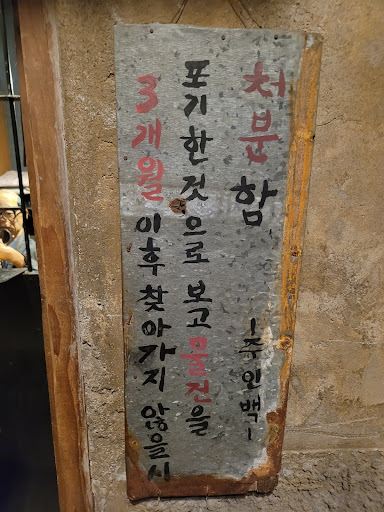 3개월 이후 찾아가지 않을시
포기한것으로 보고 물건을
처분함
-주인백-